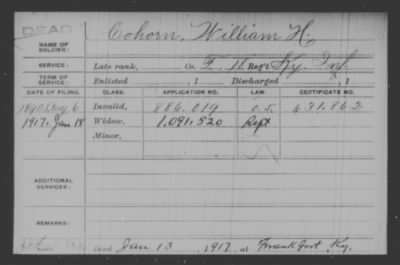 DEAD
Cohorn, William H.
NAME OF SOLDIER:
SERVICE: Late rank, Co. F, Reg't Ky. Inf.
TERM OF SERVICE: Enlisted , 1 Discharged , 1
DATE OF FILING. CLASS. APPLICATION NO. LAW. CERTIFICATE NO.
1890 Aug 6 Invalid, 886.019 631.862
1917, Jan 18 Widow, 1.091.520 Rept
Minor,
ADDITIONAL SERVICES:
REMARKS:
died Jan 13, 1917 at Frankfort Ky.